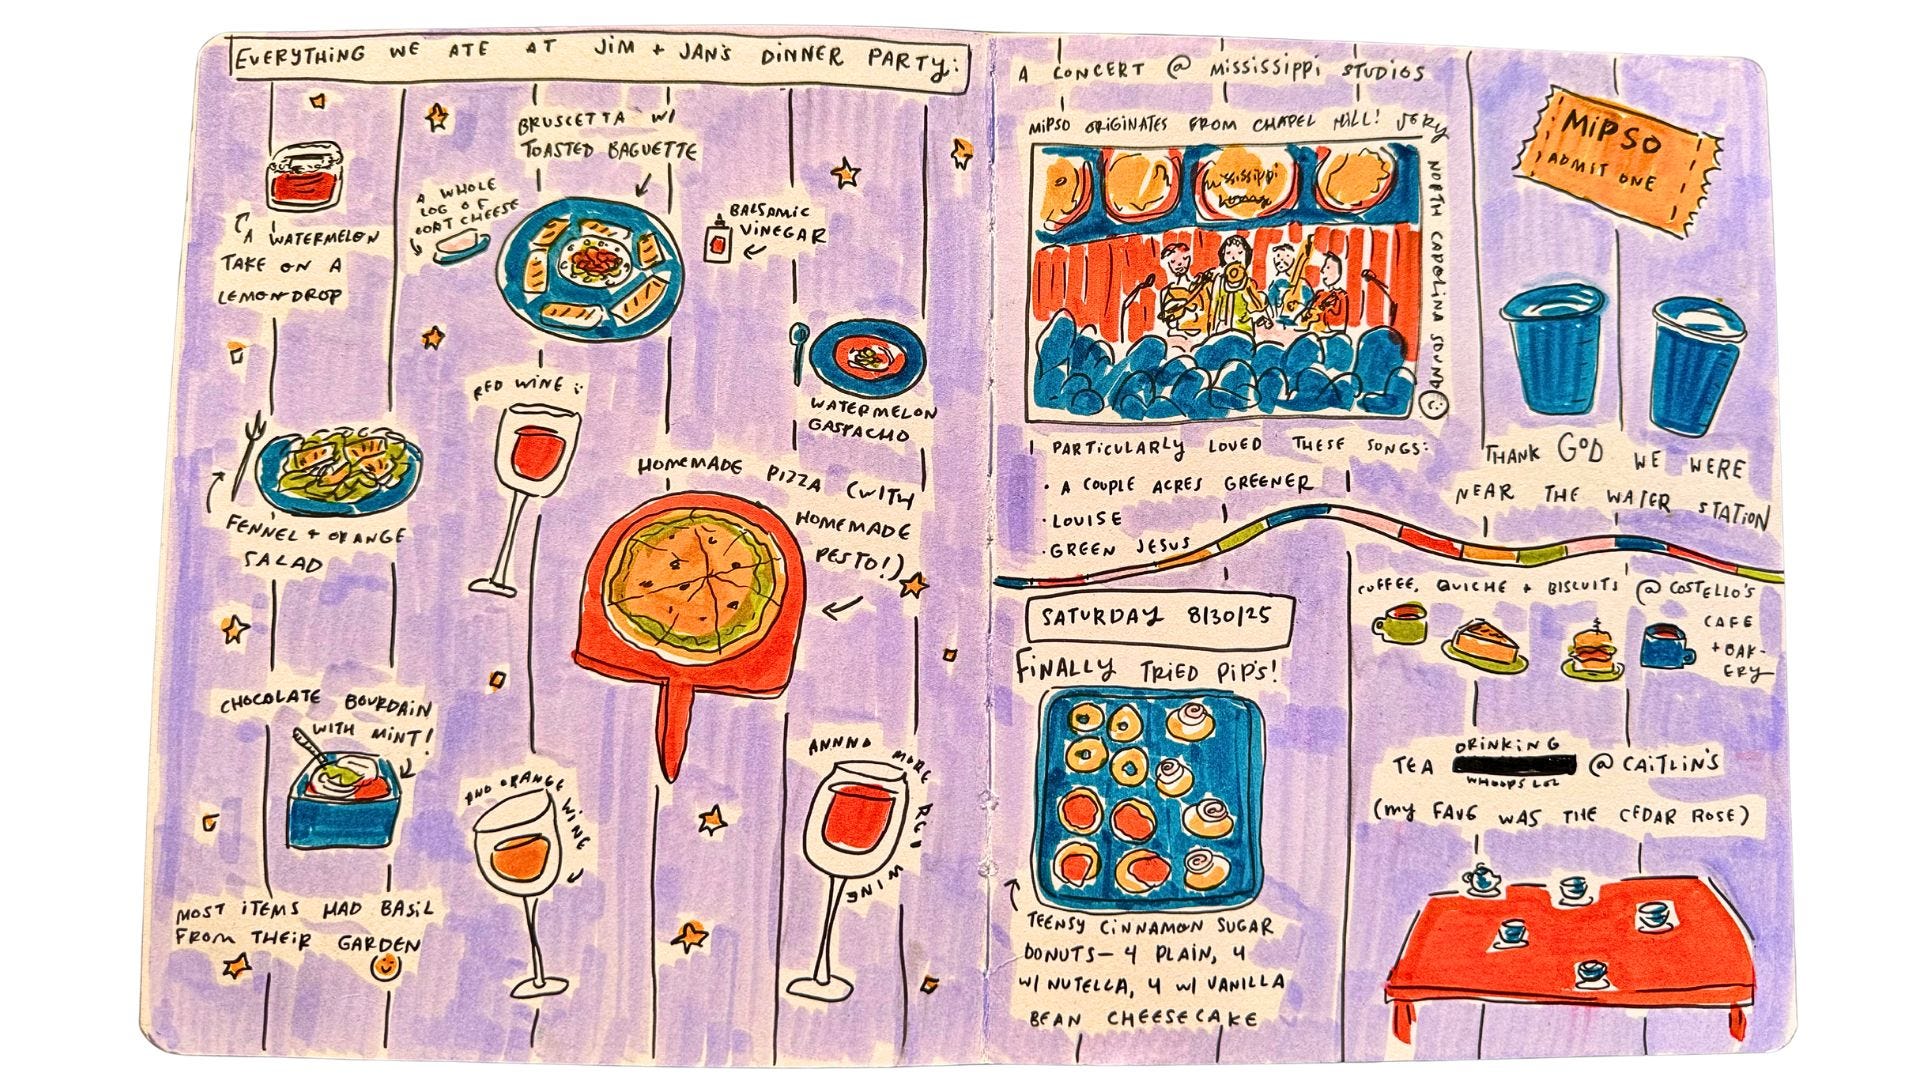 EVERYTHING WE ATE AT JIM + JAN'S DINNER PARTY:
A WATERMELON
TAKE ON A
LEMONDROP
A WHOLE
LOG OF
GOAT CHEESE
BRUSCETTA W/
TOASTED BAGUETTE
BALSAMIC
VINEGAR
WATERMELON
GASPACHO
RED WINE :)
FENNEL + ORANGE
SALAD
HOMEMADE PIZZA (WITH
HOMEMADE
PESTO!)
CHOCOLATE BOURDAIN
WITH MINT!
AND ORANGE
WINE
ANNND MORE
RED
WINE
MOST ITEMS HAD BASIL
FROM THEIR GARDEN
A CONCERT @ MISSISSIPPI STUDIOS
MIPSO ORIGINATES FROM CHAPEL HILL! VERY
NORTH CAROLINA SOUND
MISSISSIPPI
MIPSO
ADMIT ONE
I PARTICULARLY LOVED THESE SONGS:
· A COUPLE ACRES GREENER
· LOUISE
· GREEN JESUS
THANK GOD WE WERE
NEAR THE WATER STATION
SATURDAY 8/30/25
FINALLY TRIED PIP'S!
TEENSY CINNAMON SUGAR
DONUTS— 4 PLAIN, 4
W/ NUTELLA, 4 W/ VANILLA
BEAN CHEESECAKE
COFFEE, QUICHE + BISCUITS @ COSTELLO'S
CAFE
+ BAK-
ERY
DRINKING
TEA @ CAITLIN'S
WHOOPS LOL
(MY FAVE WAS THE CEDAR ROSE)